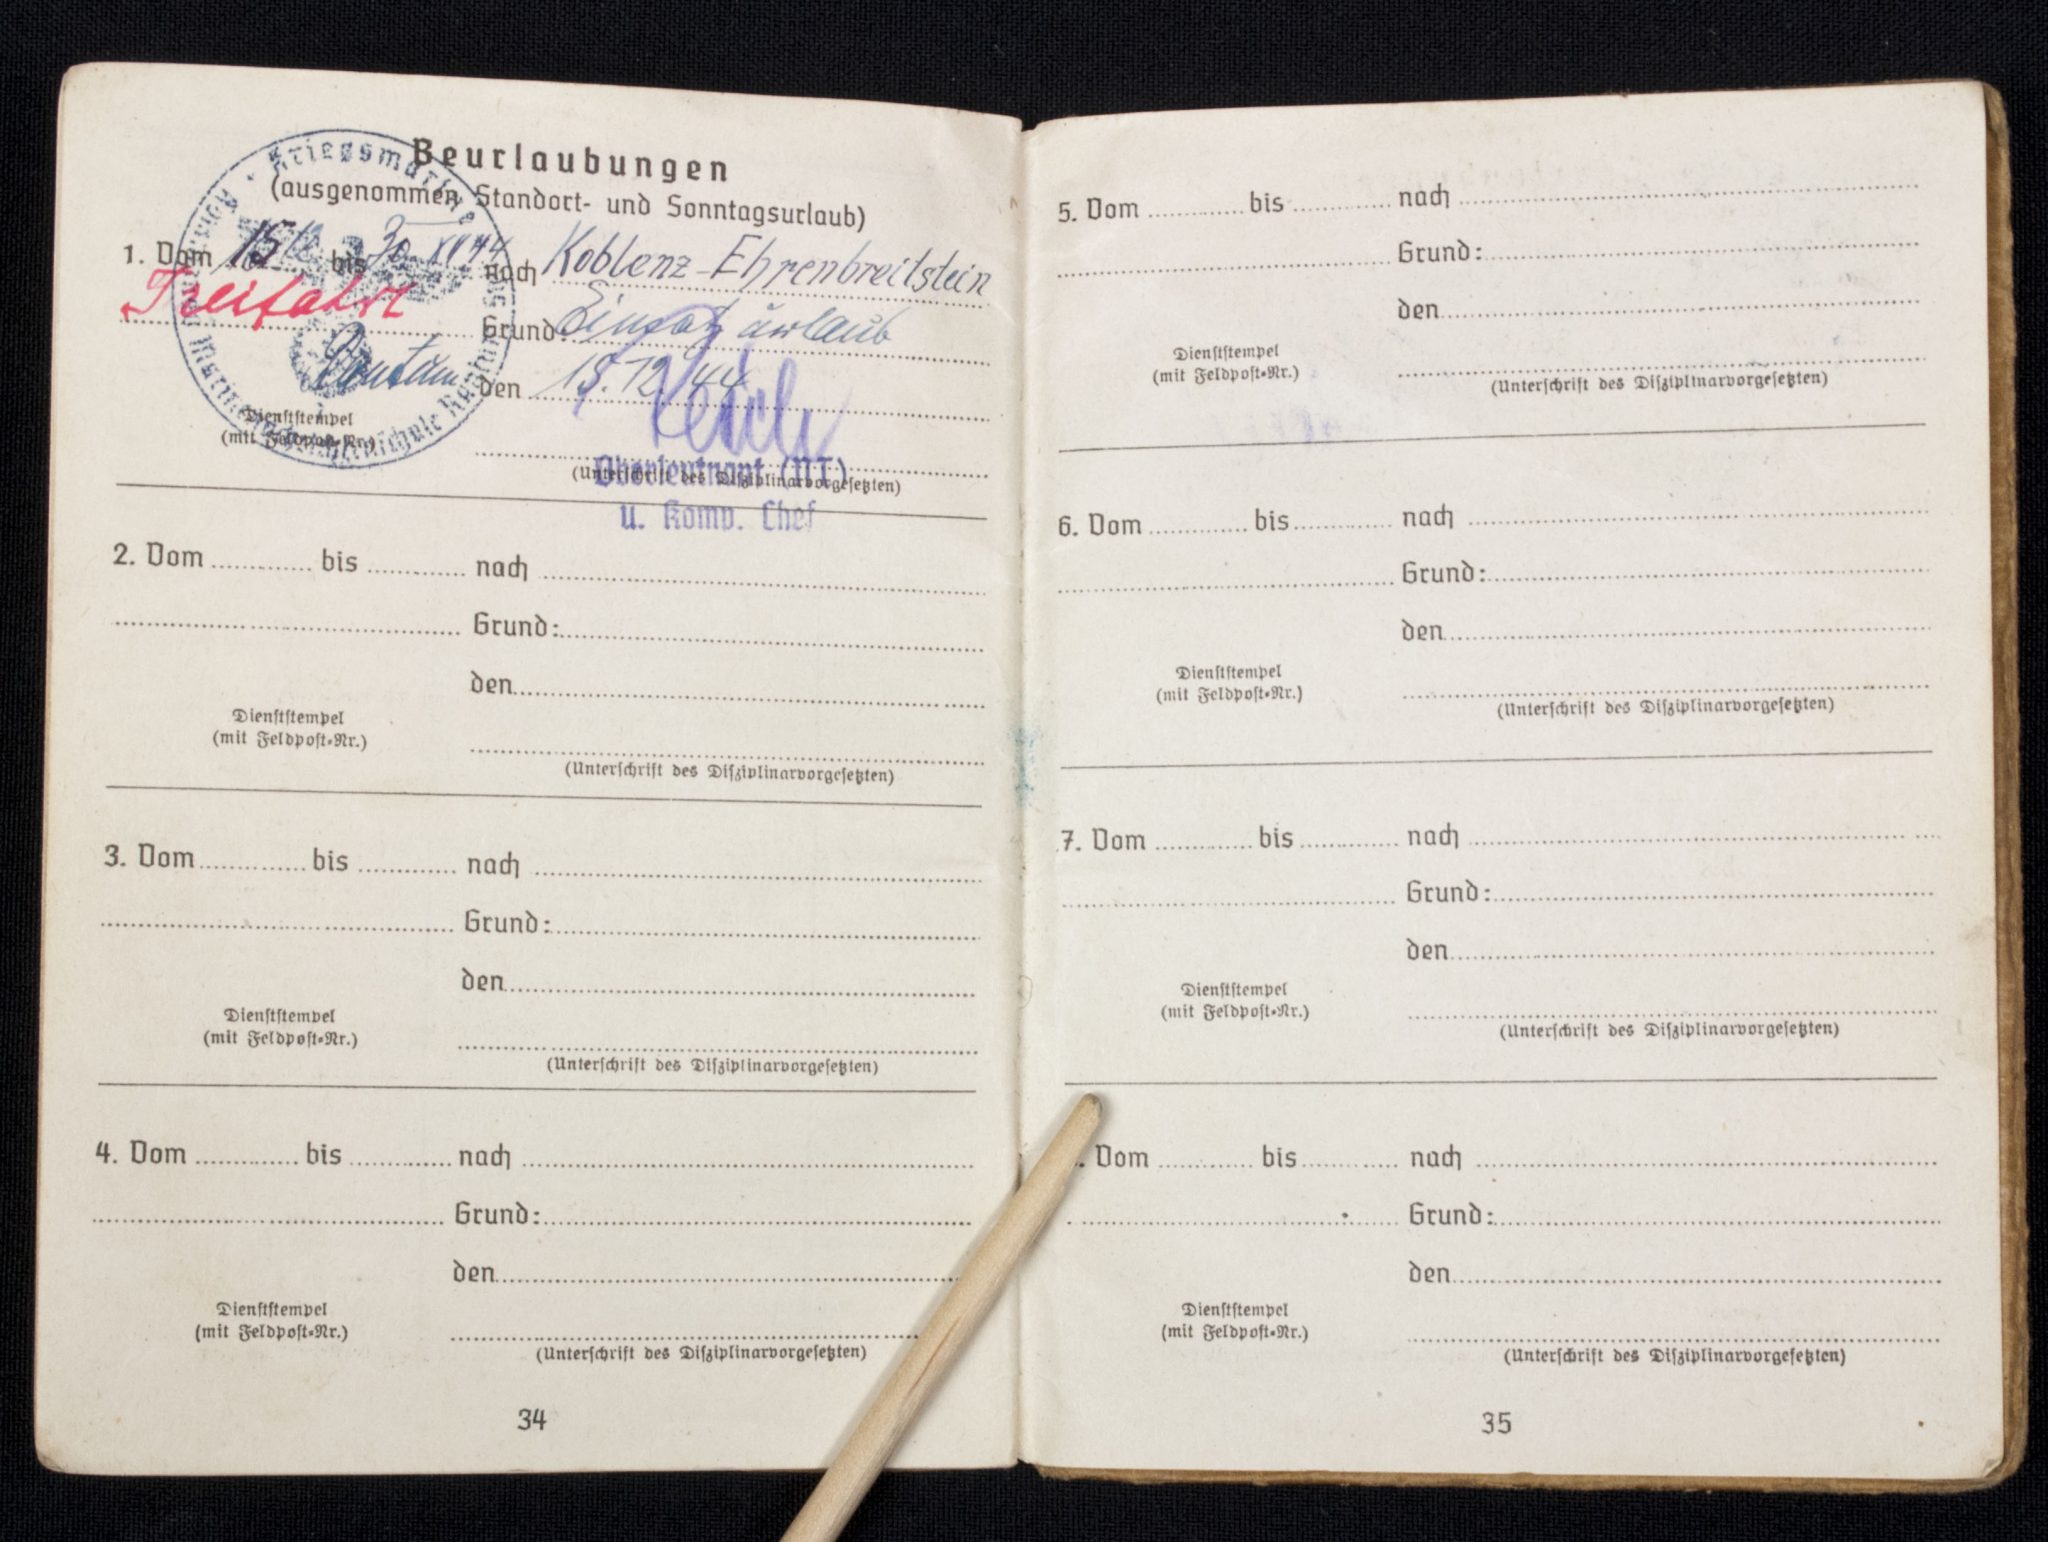 Beurlaubungen
(ausgenommen Standort- und Sonntagsurlaub)
1. Vom 15/12 bis 30.XII 44 nach Koblenz-Ehrenbreitstein
Freifahrt
Grund: Einsatzurlaub
den 15.12.44
Dienststempel
(mit Feldpost-Nr.)
Kriegsmarine
Oberleutnant (NT)
(Unterschrift des Disziplinarvorgesetzten)
u. Komp. Chef
2. Vom bis nach
Grund:
den
Dienststempel
(mit Feldpost-Nr.)
(Unterschrift des Disziplinarvorgesetzten)
3. Vom bis nach
Grund:
den
Dienststempel
(mit Feldpost-Nr.)
(Unterschrift des Disziplinarvorgesetzten)
4. Vom bis nach
Grund:
den
Dienststempel
(mit Feldpost-Nr.)
(Unterschrift des Disziplinarvorgesetzten)
34
5. Vom bis nach
Grund:
den
Dienststempel
(mit Feldpost-Nr.)
(Unterschrift des Disziplinarvorgesetzten)
6. Vom bis nach
Grund:
den
Dienststempel
(mit Feldpost-Nr.)
(Unterschrift des Disziplinarvorgesetzten)
7. Vom bis nach
Grund:
den
Dienststempel
(mit Feldpost-Nr.)
(Unterschrift des Disziplinarvorgesetzten)
. Vom bis nach
Grund:
den
Dienststempel
(mit Feldpost-Nr.)
(Unterschrift des Disziplinarvorgesetzten)
35